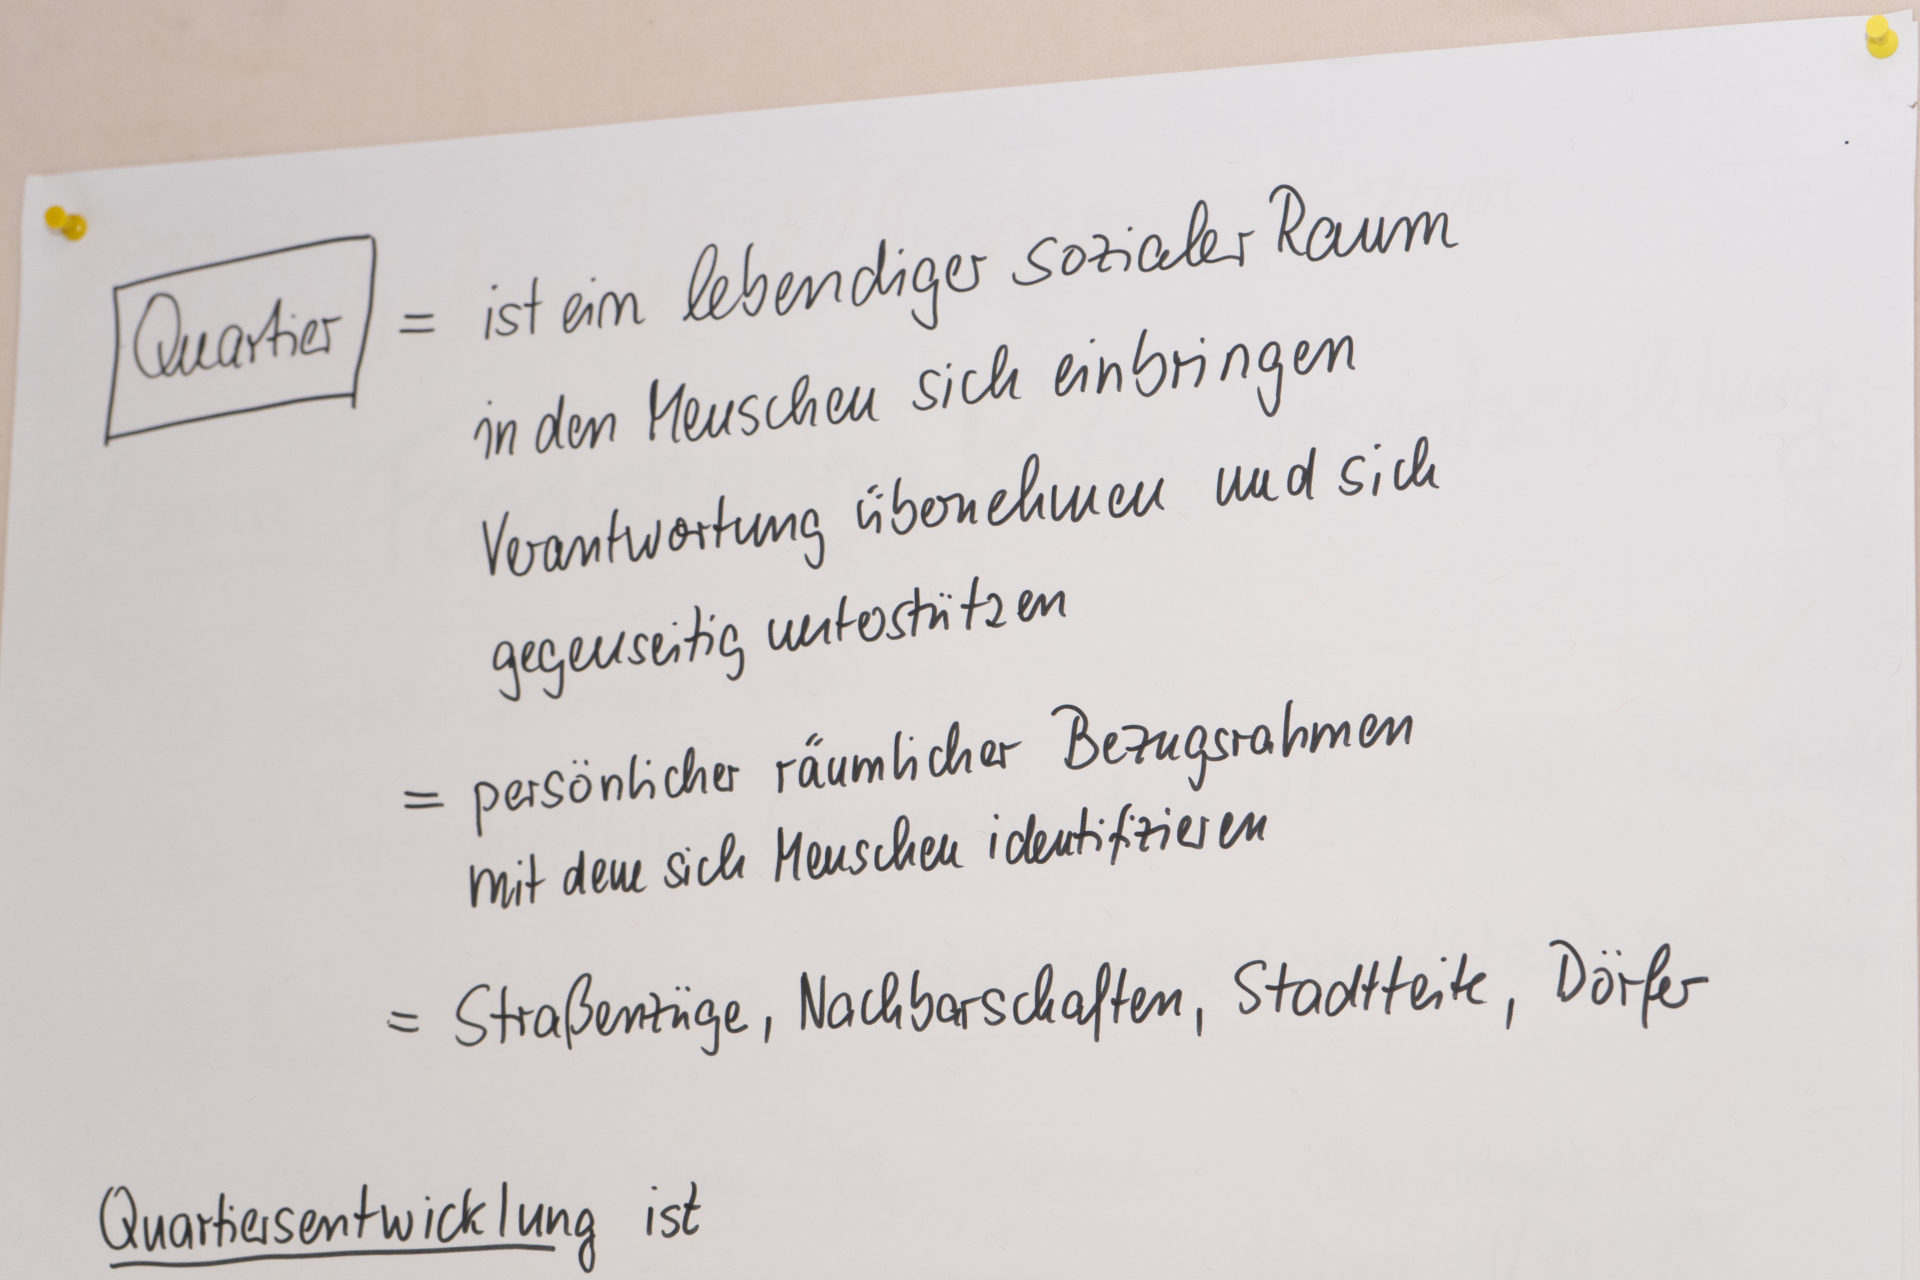 Quartier = ist ein lebendiger sozialer Raum
in den Menschen sich einbringen
Verantwortung übernehmen und sich
gegenseitig unterstützen
= persönlicher räumlicher Bezugsrahmen
mit dem sich Menschen identifizieren
= Straßenzüge, Nachbarschaften, Stadtteile, Dörfer
Quartiersentwicklung ist